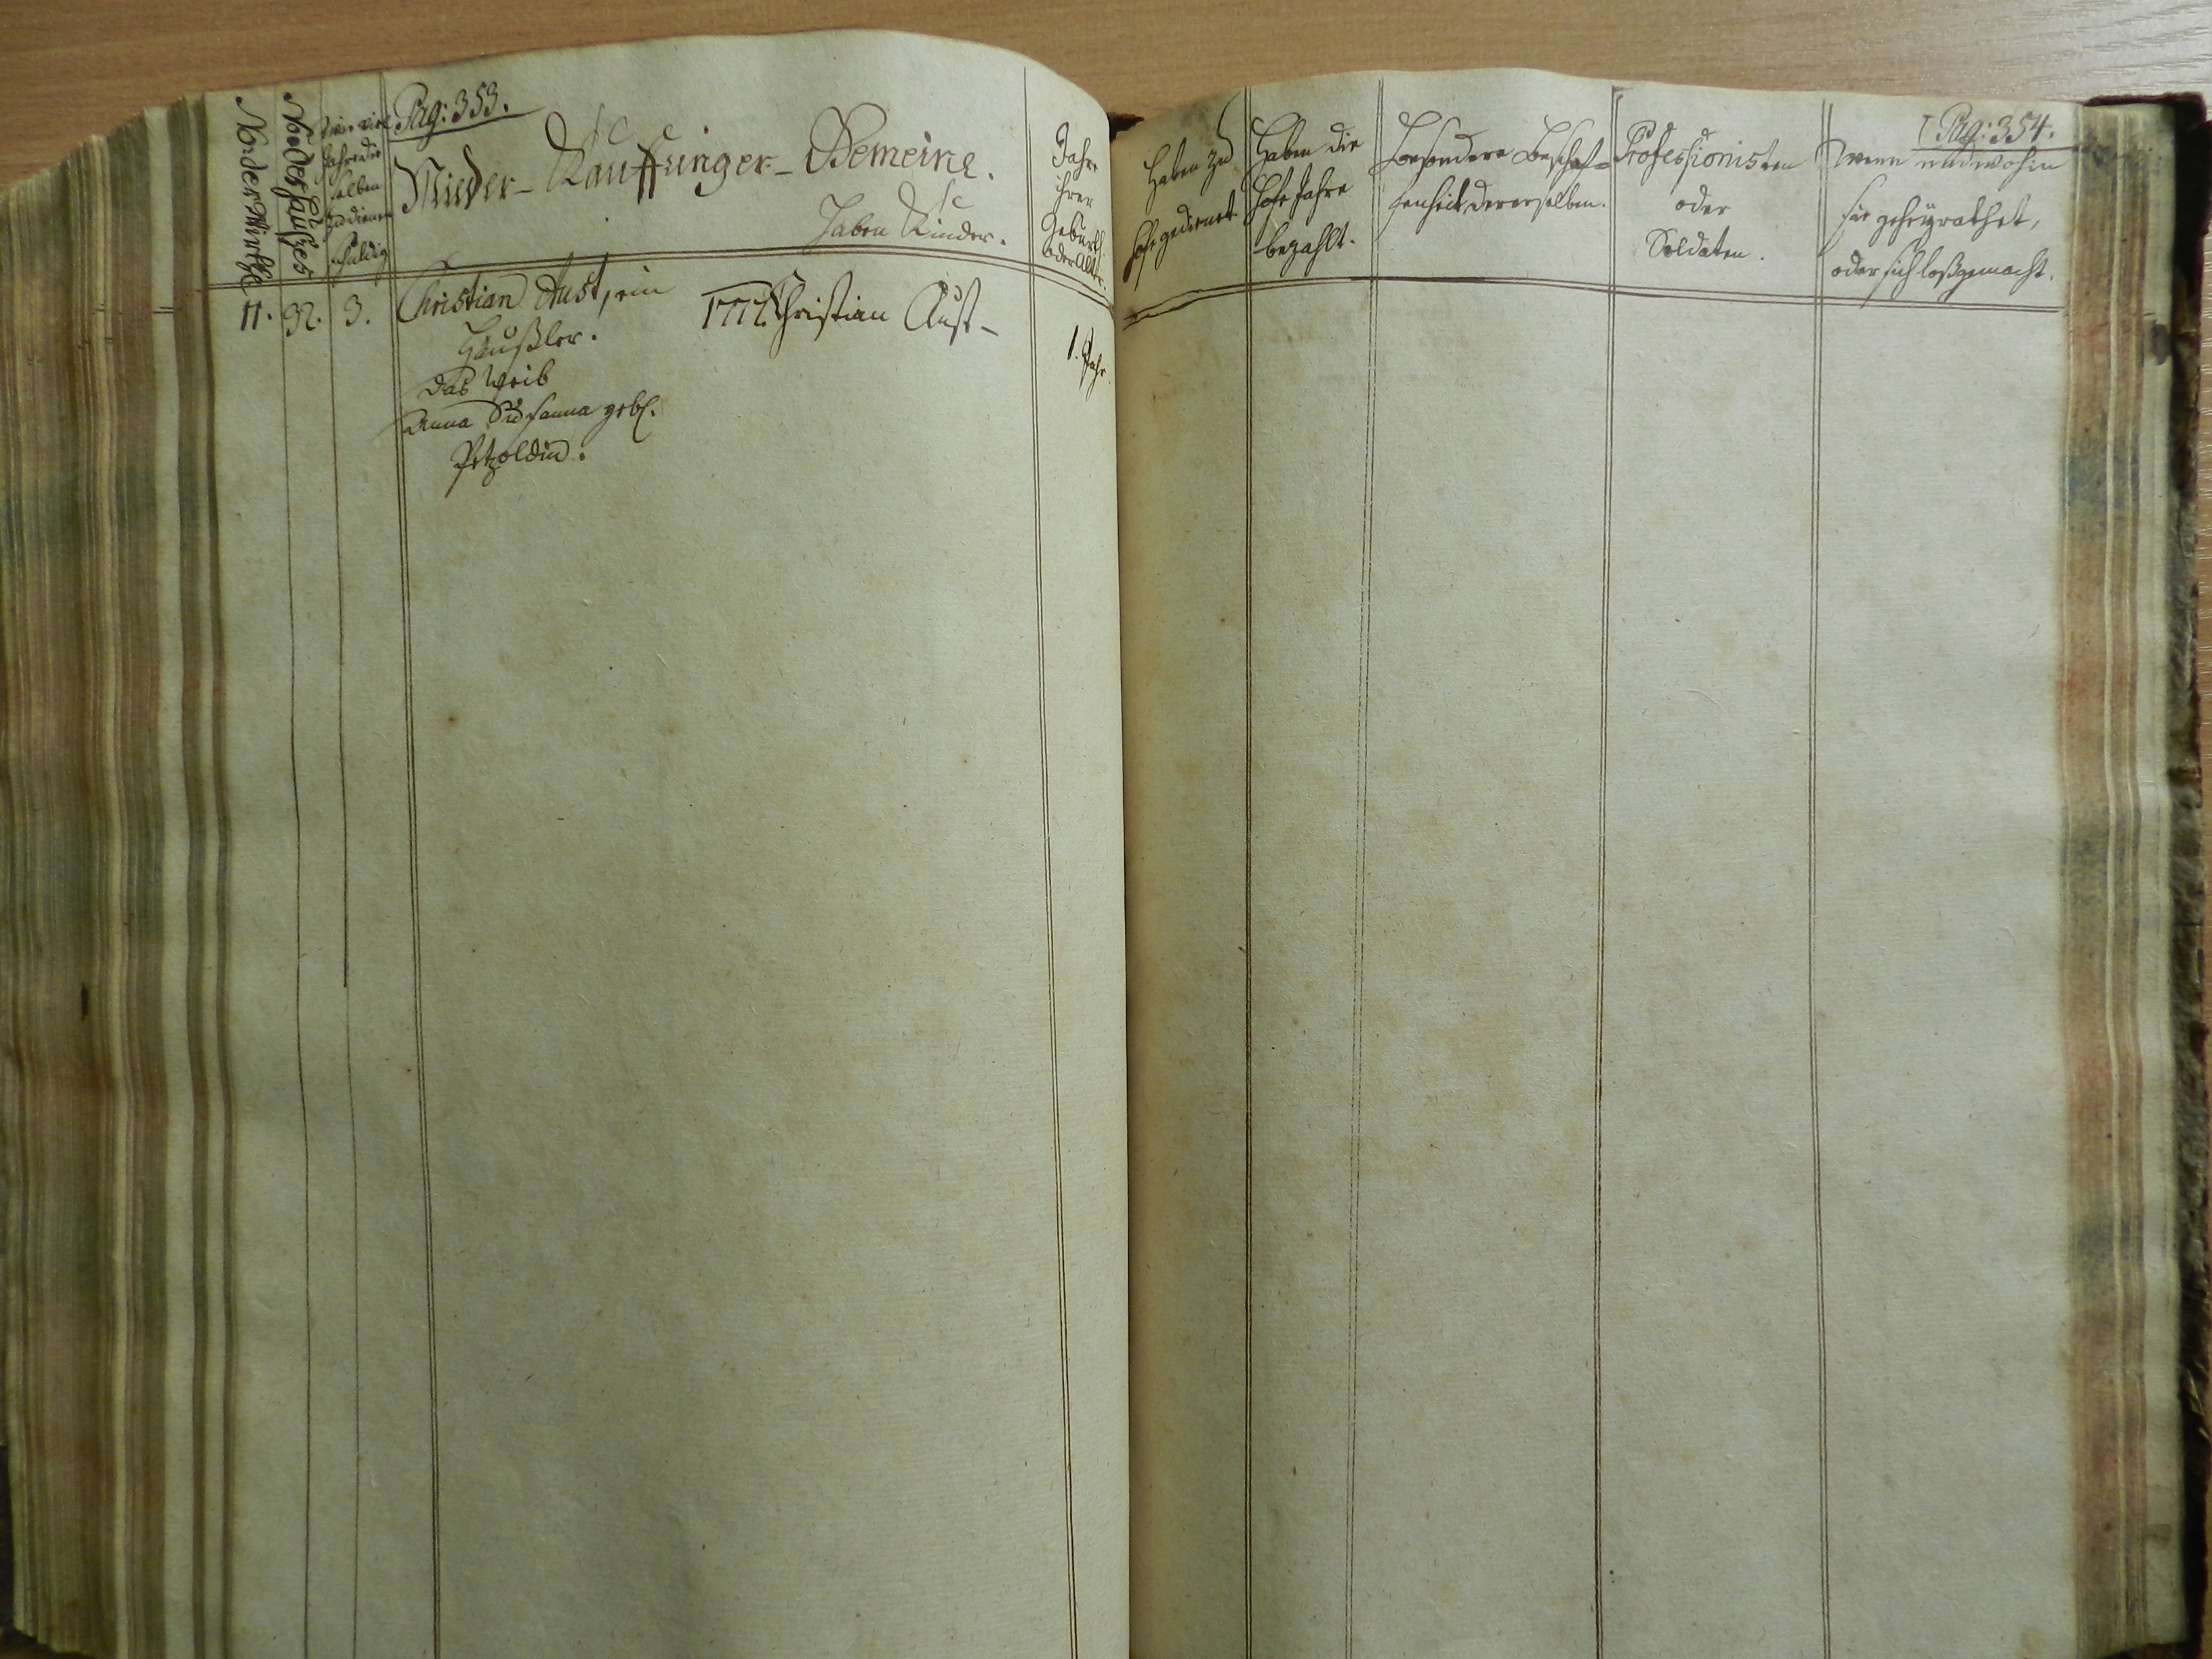 Pag: 353.
No: der Wirthe
No: des Hauses
wie viel
Jahre die
selben
zu dienen
schuldig
Nieder-Kauffunger-Gemeine.
Haben Kinder.
Jahre
ihrer
Geburth
oder Alter.
11. 32. 3. Christian Aust, ein
Häußler.
das Weib
Anna Susanna geb.
Petzoldin.
1777. Christian Aust -
1. Jahr.
Pag: 354.
Haben zu
Hofe gedienet
Haben die
Hofe Jahre
bezahlt.
Besondere Beschaf-
fenheit dererselben.
Professionisten
oder
Soldaten.
wenn und wohin
sie geheyrathet,
oder sich loßgemacht.